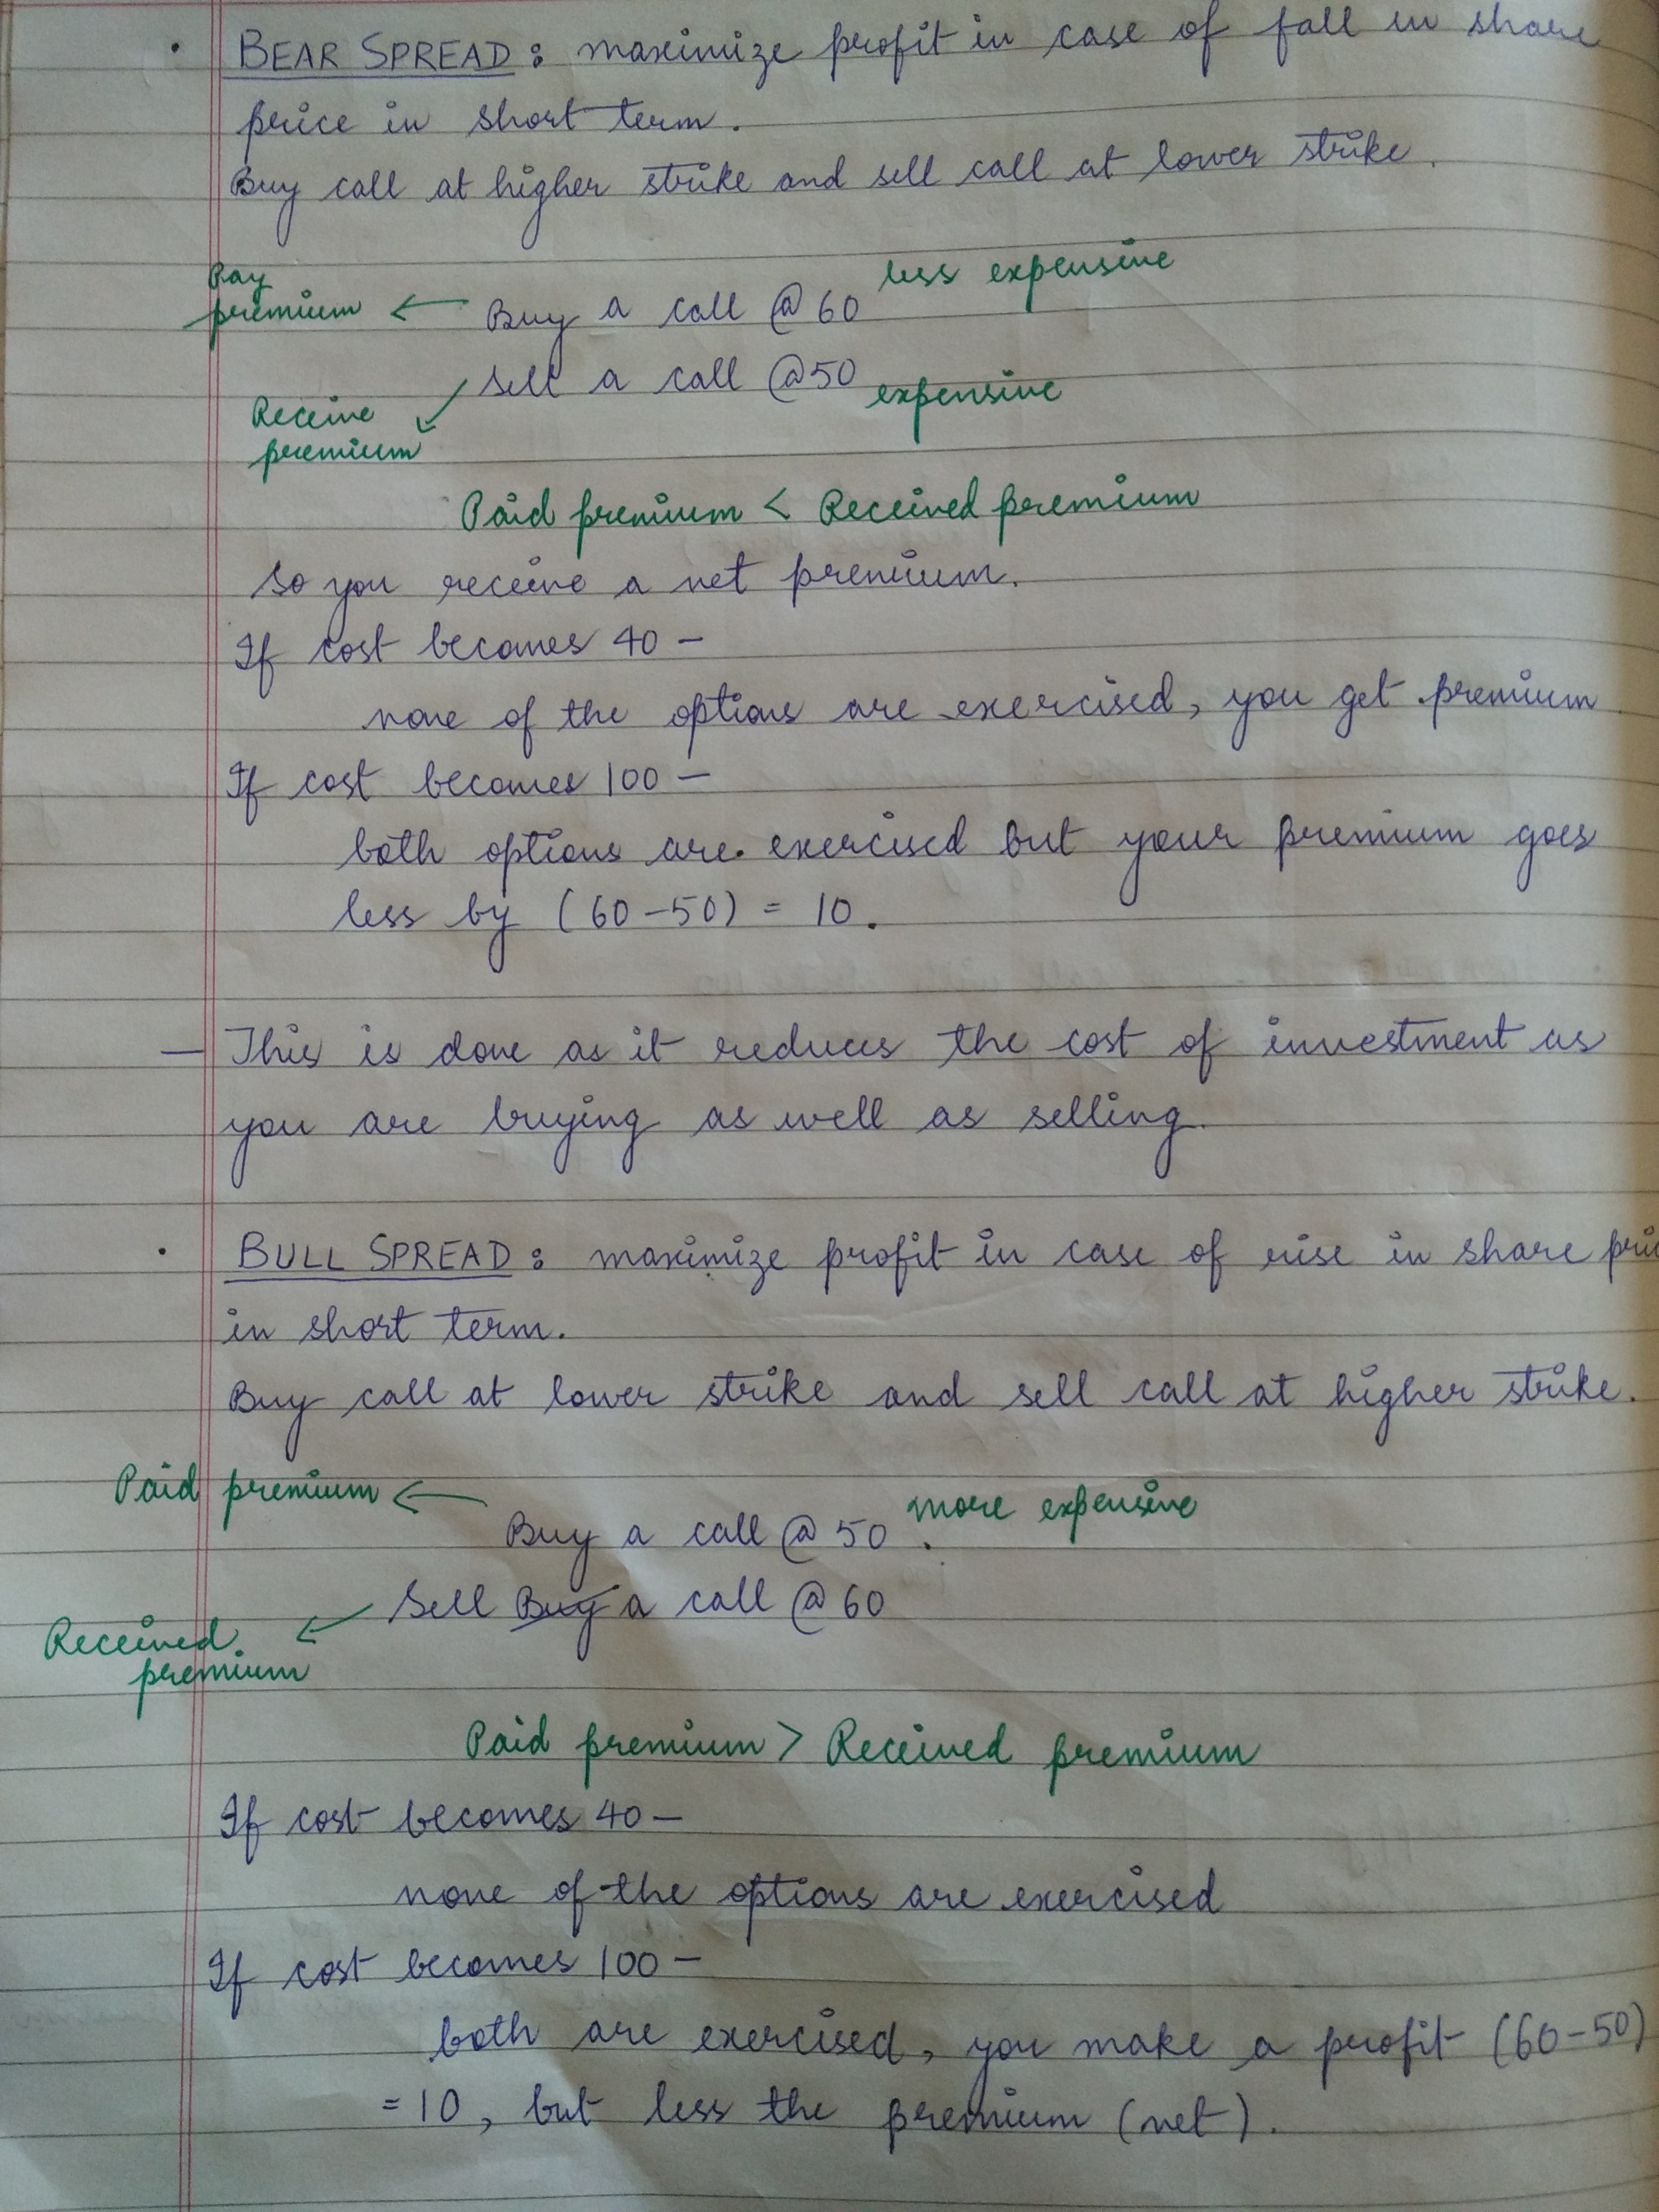 • BEAR SPREAD : maximize profit in case of fall in share
price in short term.
Buy call at higher strike and sell call at lower strike.
Pay
premium ← Buy a call @ 60 less expensive
Sell a call @50 expensive
Receive
premium
Paid premium < Received premium
So you receive a net premium.
If cost becomes 40 –
none of the options are exercised, you get premium
If cost becomes 100 –
both options are exercised but your premium goes
less by (60-50) = 10.
— This is done as it reduces the cost of investment as
you are buying as well as selling.
• BULL SPREAD : maximize profit in case of rise in share pric
in short term.
Buy call at lower strike and sell call at higher strike.
Paid premium ← Buy a call @ 50. more expensive
Sell Buy a call @ 60
Received
premium
Paid premium > Received premium
If cost becomes 40 –
none of the options are exercised
If cost becomes 100 –
both are exercised, you make a profit (60-50)
= 10, but less the premium (net).